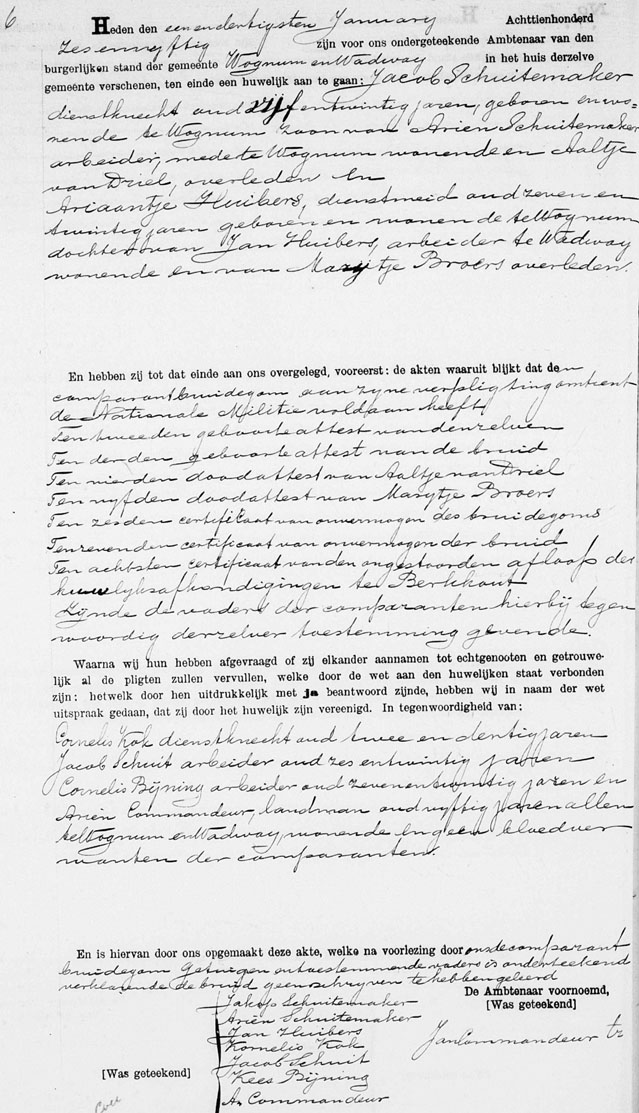 6
Heden den eenendertigsten January Achttienhonderd
zesenvyftig zijn voor ons ondergeteekende Ambtenaar van den
burgerlijken stand der gemeente Wognum en Wadway in het huis derzelve
gemeente verschenen, ten einde een huwelijk aan te gaan: Jacob Schuitemaker
dienstknecht oud vijfentwintig jaren, geboren en wo-
nende te Wognum zoon van Ariën Schuitemaker
arbeider, mede te Wognum wonende en Aaltje
van Driel, overleden En
Ariaantje Huibers, dienstmeid oud zeven en
twintig jaren geboren en wonende te Wognum
dochter van Jan Huibers, arbeider te Wadway
wonende en van Marijtje Broers overleden.
En hebben zij tot dat einde aan ons overgelegd, vooreerst: de akten waaruit blijkt dat den
comparant bruidegom aan zyne verpligting omtrent
de Nationale Militie voldaan heeft
Ten tweeden geboorte attest van denzelven
Ten derden geboorte attest van de bruid
Ten vierden doodattest van Aaltje van Driel
Ten vyfden doodattest van Marytje Broers
Ten zesden certificaat van onvermogen des bruidegoms
Ten zevenden certificaat van onvermogen der bruid
Ten achtsten certificaat van den ongestoorden afloop der
huwelyksafkondigingen te Berkhout
Zijnde de vaders der comparanten hierbij tegen
woordig derzelver toestemming gevende.
Waarna wij hun hebben afgevraagd of zij elkander aannamen tot echtgenooten en getrouwe-
lijk al de pligten zullen vervullen, welke door de wet aan den huwelijken staat verbonden
zijn: hetwelk door hen uitdrukkelijk met ja beantwoord zijnde, hebben wij in naam der wet
uitspraak gedaan, dat zij door het huwelijk zijn vereenigd. In tegenwoordigheid van:
Cornelis Kok dienstknecht oud twee en dertig jaren
Jacob Schuit arbeider oud zes en twintig jaren
Cornelis Bijning arbeider oud zevenentwintig jaren en
Ariën Commandeur, landman oud vyftig jaren allen
te Wognum en Wadway, wonende En geen bloedver
wanten der comparanten.
En is hiervan door ons opgemaakt deze akte, welke na voorlezing door ons de comparant
bruidegom getuigen en toestemmende vaders is onderteekend
verklarende de bruid geen schryven te hebben geleerd
De Ambtenaar voornoemd,
[Was geteekend]
Jakop Schuitemaker
Ariën Schuitemaker
Jan Huibers
Kornelis Kok
Jan Commandeur
Jacob Schuit
[Was geteekend]
Kees Bijning
A. Commandeur